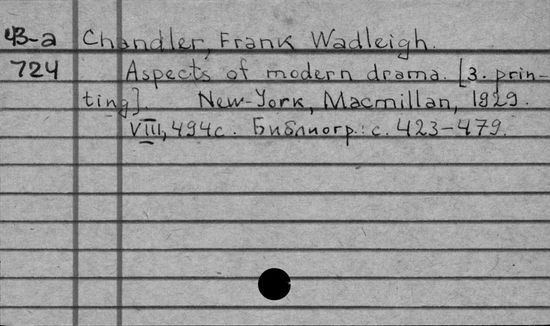 43-a Chandler, Frank Wadleigh.
724 Aspects of modern drama. [3. prin-
ting]. New-York, Macmillan, 1929.
VIII, 494 c. Библиогр.: с. 423-479.